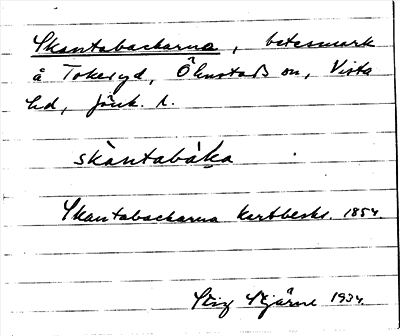 Skantabackarna, betesmark
å Tokeryd, Ölmstads sn, Vista
hd, Jönk. l.
skàntabáka
Skantabackarna Kartbeskr. 1854.
Stig Stjärne 1934